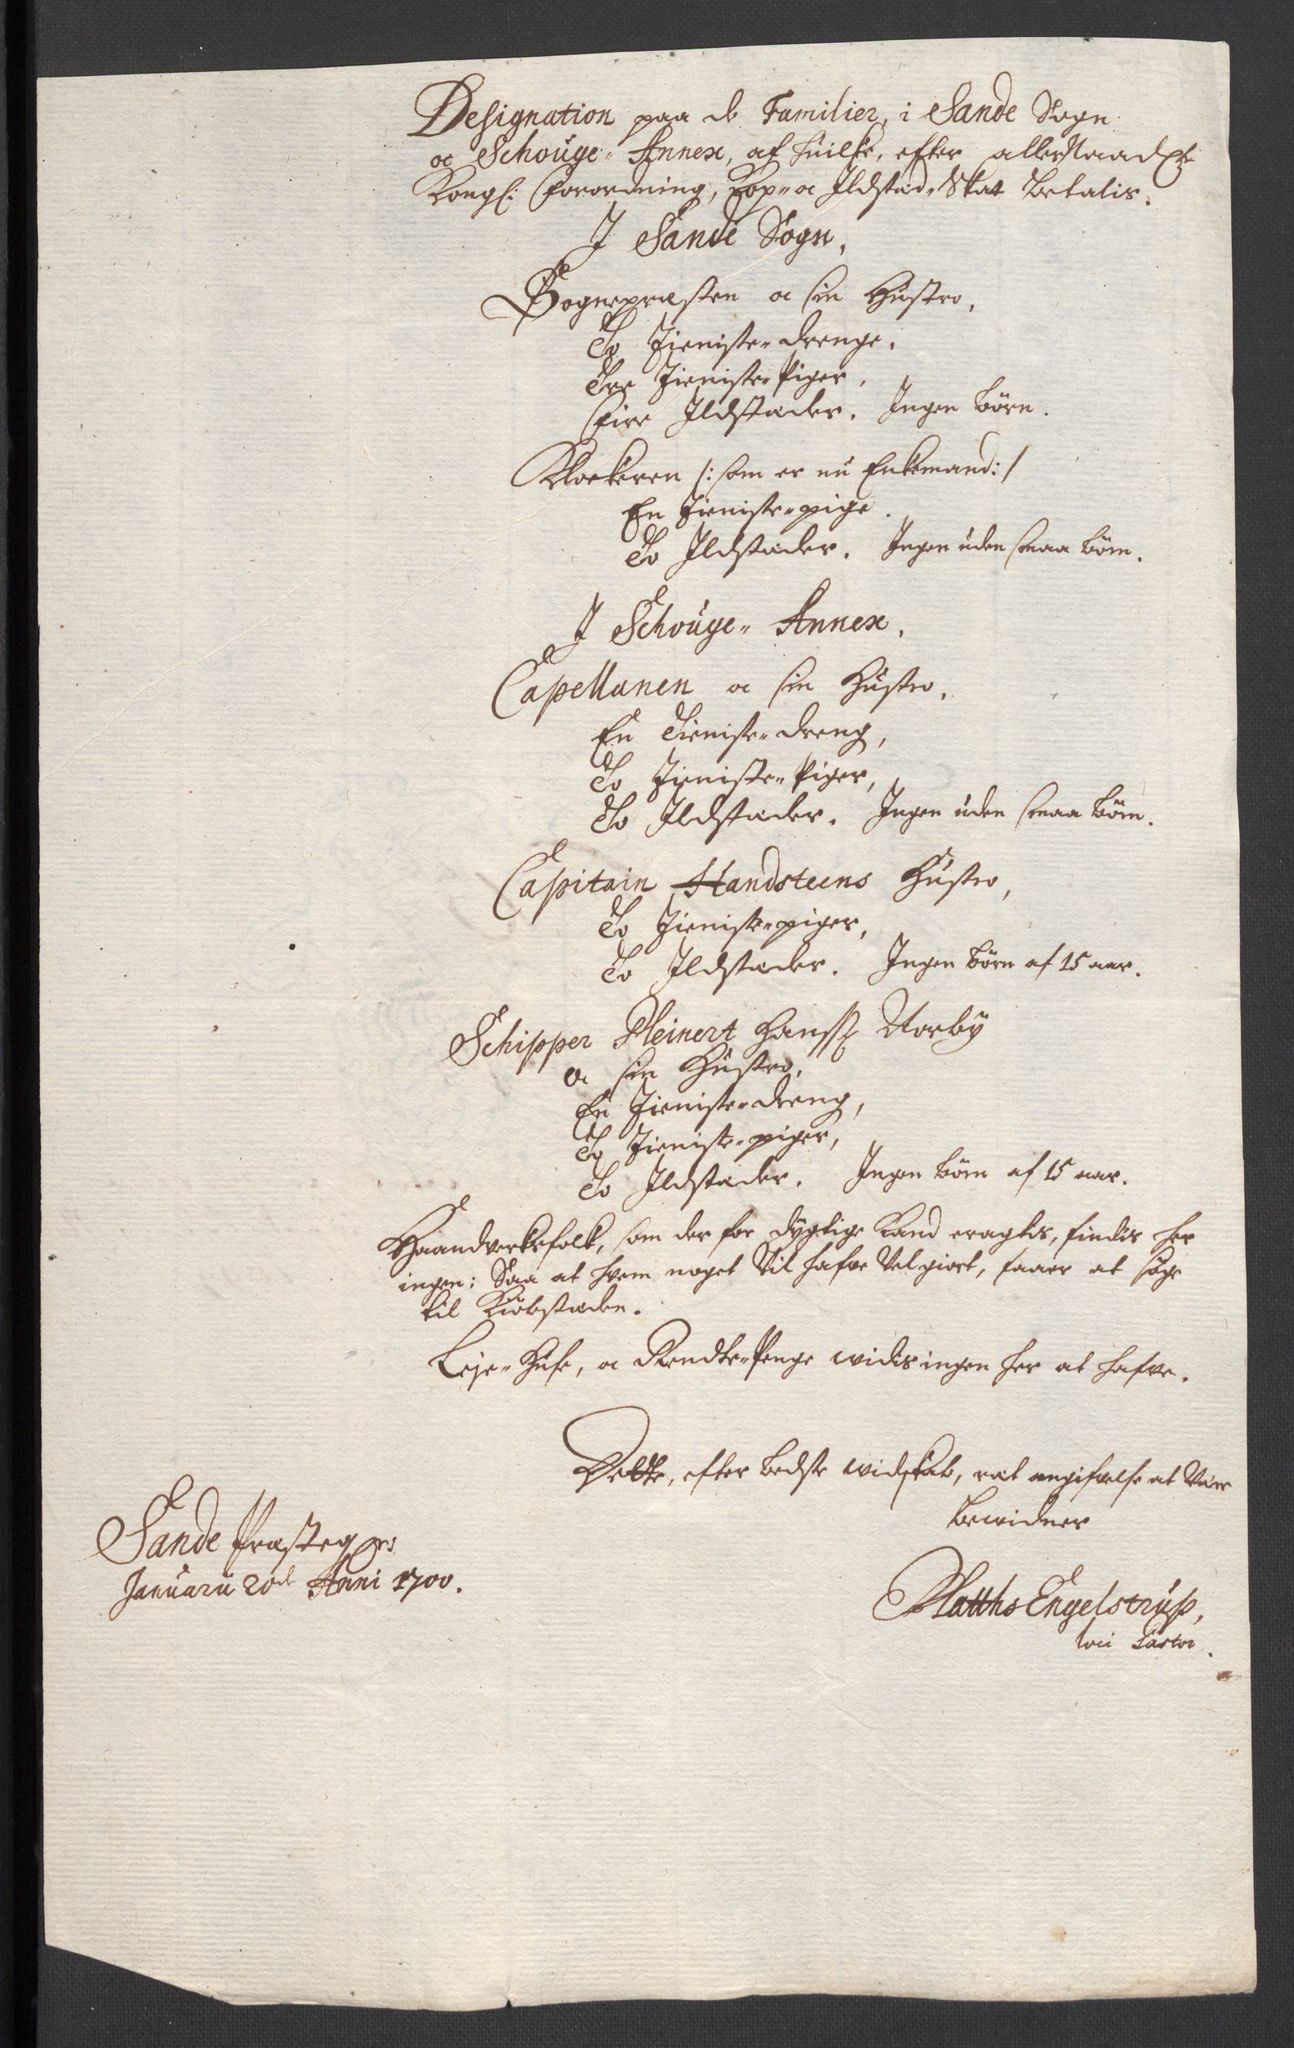 Designation paa de Familier, i Sande Sogn
oc Schouge- Annex, af huilke, efter allernaadste
Kongl: Forordning, Kop- oc Ildsted-Skat betalis.
I Sande Sogn,
Sognepræsten oc sin Hustro,
To Tieniste-drenge.
Tre Tieniste-Piger,
Fire Ildstæder. Ingen børn.
Klockeren /: som er nu Enkemand: /
En Tieniste-pige.
To Ildstæder. Ingen uden smaa børn.
I Schouge- Annex.
Capellanen oc sin Hustro,
En Tieniste-dreng,
To Tieniste-Piger,
To Ildstæder. Ingen uden smaa børn.
Capitain Handsteens Hustro,
To Tieniste-piger,
To Ildstæder. Ingen børn af 15 aar.
Schipper Meinert Hanss Norby
oc sin Hustro,
En Tieniste-dreng,
To Tieniste-piger,
To Ildstæder. Ingen børn af 15 aar.
Haandverksfolk, som der for dygtige Kand eragtis, findis her
ingen: Saa at hvem noget vil hafve vel giort, faaer at søge
til Kiøbstæden.
Leje-Huse, oc Rendte-Penge widis ingen her at hafve.
Dette, efter bedste widskab, ret angifvelse at være
bewidner
Sande Præstegrd
Januarii 20de Anni 1700.
Matths Engelstrup,
loci Pastor.